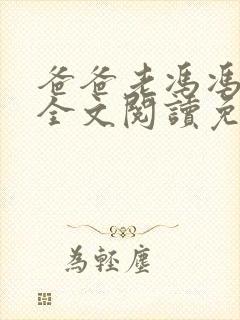 爸爸老馮馮
全文閱讀免
為輕塵